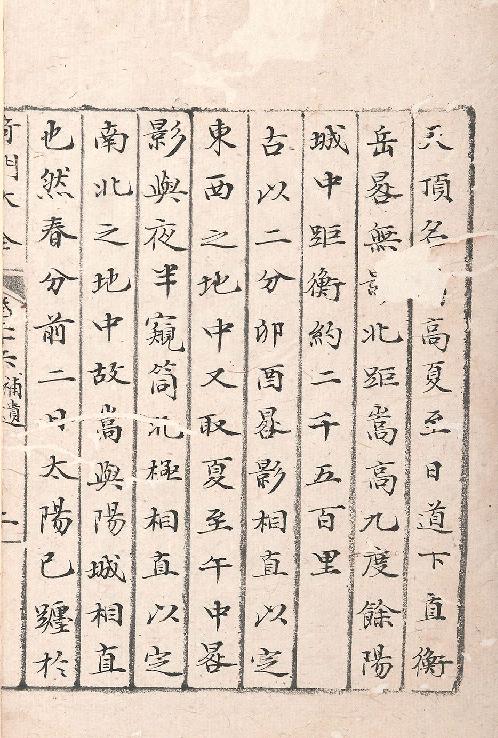 天頂名高夏至日道下直衡
岳晷無北距嵩高九度餘陽
城中距衡約二千五百里
古以二分卯酉晷影相直以定
東西之地中又取夏至午中晷
影與夜半窺筒北極相直以定
南北之地中故嵩與陽城相直
也然春分前二日太陽已躔於
奇門大全 補遺